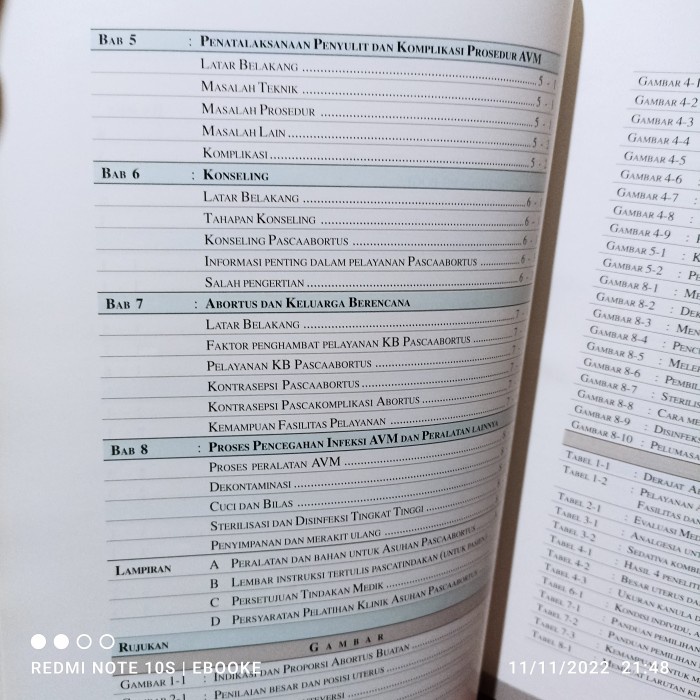 BAB 5 : PENATALAKSANAAN PENYULIT DAN KOMPLIKASI PROSEDUR AVM
LATAR BELAKANG ........ 5 - 1
MASALAH TEKNIK ........ 5 - 1
MASALAH PROSEDUR ........ 5 - 1
MASALAH LAIN ........ 5 - 2
KOMPLIKASI ........ 5 - 2
BAB 6 : KONSELING
LATAR BELAKANG ........ 6 - 1
TAHAPAN KONSELING ........ 6 -
KONSELING PASCAABORTUS ........ 6 -
INFORMASI PENTING DALAM PELAYANAN PASCAABORTUS ........ 6 -
SALAH PENGERTIAN ........ 6 -
BAB 7 : ABORTUS DAN KELUARGA BERENCANA
LATAR BELAKANG ........ 7 -
FAKTOR PENGHAMBAT PELAYANAN KB PASCAABORTUS ........ 7
PELAYANAN KB PASCAABORTUS ........ 7
KONTRASEPSI PASCAABORTUS ........
KONTRASEPSI PASCAKOMPLIKASI ABORTUS ........
KEMAMPUAN FASILITAS PELAYANAN ........
BAB 8 : PROSES PENCEGAHAN INFEKSI AVM DAN PERALATAN LAINNYA
PROSES PERALATAN AVM ........
DEKONTAMINASI ........
CUCI DAN BILAS ........
STERILISASI DAN DISINFEKSI TINGKAT TINGGI ........
PENYIMPANAN DAN MERAKIT ULANG ........
LAMPIRAN A PERALATAN DAN BAHAN UNTUK ASUHAN PASCAABORTUS
B LEMBAR INSTRUKSI TERTULIS PASCATINDAKAN (UNTUK PASIEN
C PERSETUJUAN TINDAKAN MEDIK ........
D PERSYARATAN PELATIHAN KLINIK ASUHAN PASCAABORTUS
RUJUKAN
GAMBAR
GAMBAR 1-1 : INDIKASI DAN PROPORSI ABORTUS BUATAN
: PENILAIAN BESAR DAN POSISI UTERUS
GAMBAR 4-1
GAMBAR 4-2
GAMBAR 4-3
GAMBAR 4-4
GAMBAR 4-5
GAMBAR 4-6
GAMBAR 4-7 :
GAMBAR 4-8 :
GAMBAR 4-9 :
GAMBAR 5-1 : K
GAMBAR 5-2 : PE
GAMBAR 8-1 : ME
GAMBAR 8-2 : DEK
GAMBAR 8-3 : MEN
GAMBAR 8-4 : PENC
GAMBAR 8-5 : MELEP
GAMBAR 8-6 : PEMBIL
GAMBAR 8-7 : STERILIS
GAMBAR 8-8 : CARA ME
GAMBAR 8-9 : DISINFEKS
GAMBAR 8-10 : PELUMASA
TABEL 1-1 : DERAJAT A
TABEL 1-2 : PELAYANAN A
FASILITAS DA
TABEL 2-1 : EVALUASI MED
TABEL 3-1 : ANALGESIA UNT
TABEL 3-2 : SEDATIVA KOMB
TABEL 4-1 : HASIL 4 PENELIT
TABEL 4-2 : BESAR UTERUS DA
TABEL 4-3 : UKURAN KANULA D
TABEL 6-1 : KONDISI INDIVIDU
TABEL 7-1 : PANDUAN PEMILIHAN
TABEL 7-2 : PANDUAN PEMILIHAN
TABEL 7-3
TABEL 8-1
REDMI NOTE 10S | EBOOKE
11/11/2022 21:48